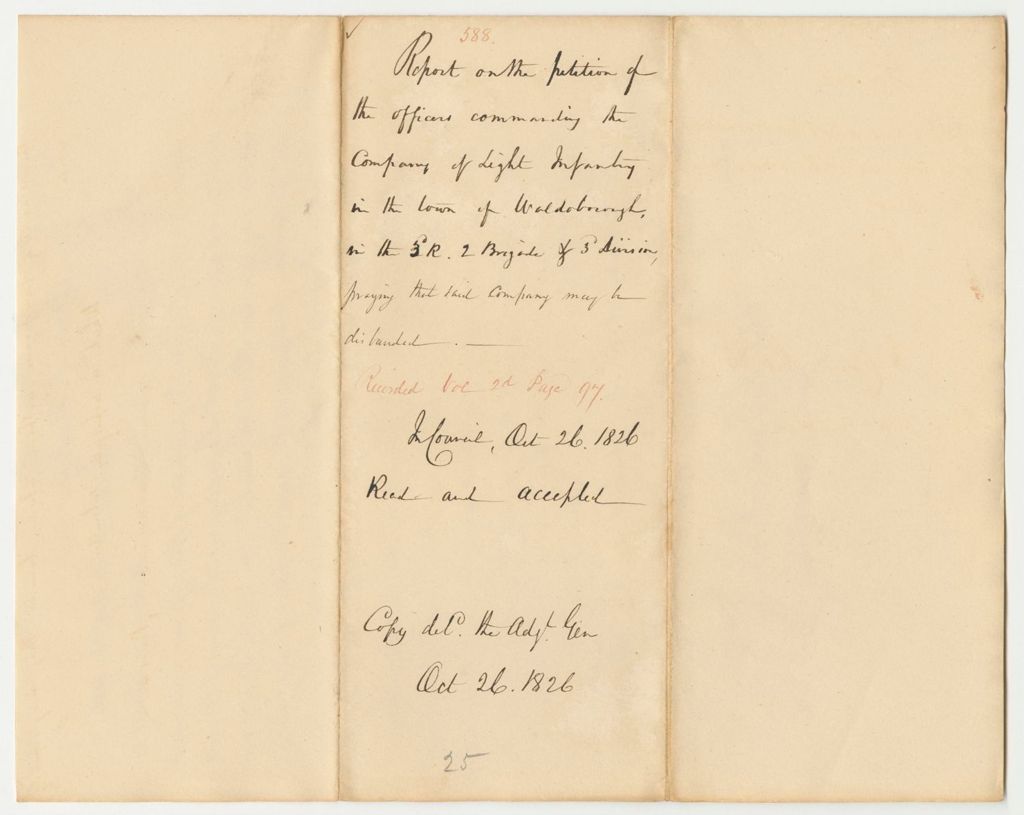 588.
Report on the petition of
the officers commanding the
Company of Light Infantry
in the town of Waldoborough,
in the 5 R. 2 Brigade & 5 Division,
praying that said Company may be
disbanded. —
Recorded Vol 2d Page 97.
In Council, Oct 26. 1826
Read and accepted
Copy del'd. the Adjt. Gen
Oct 26. 1826
25